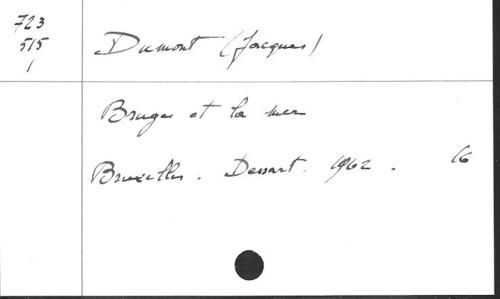 723
515
1
Dumont (Jacques)
Bruges et la mer
Bruxelles. Dessart. 1962. 16